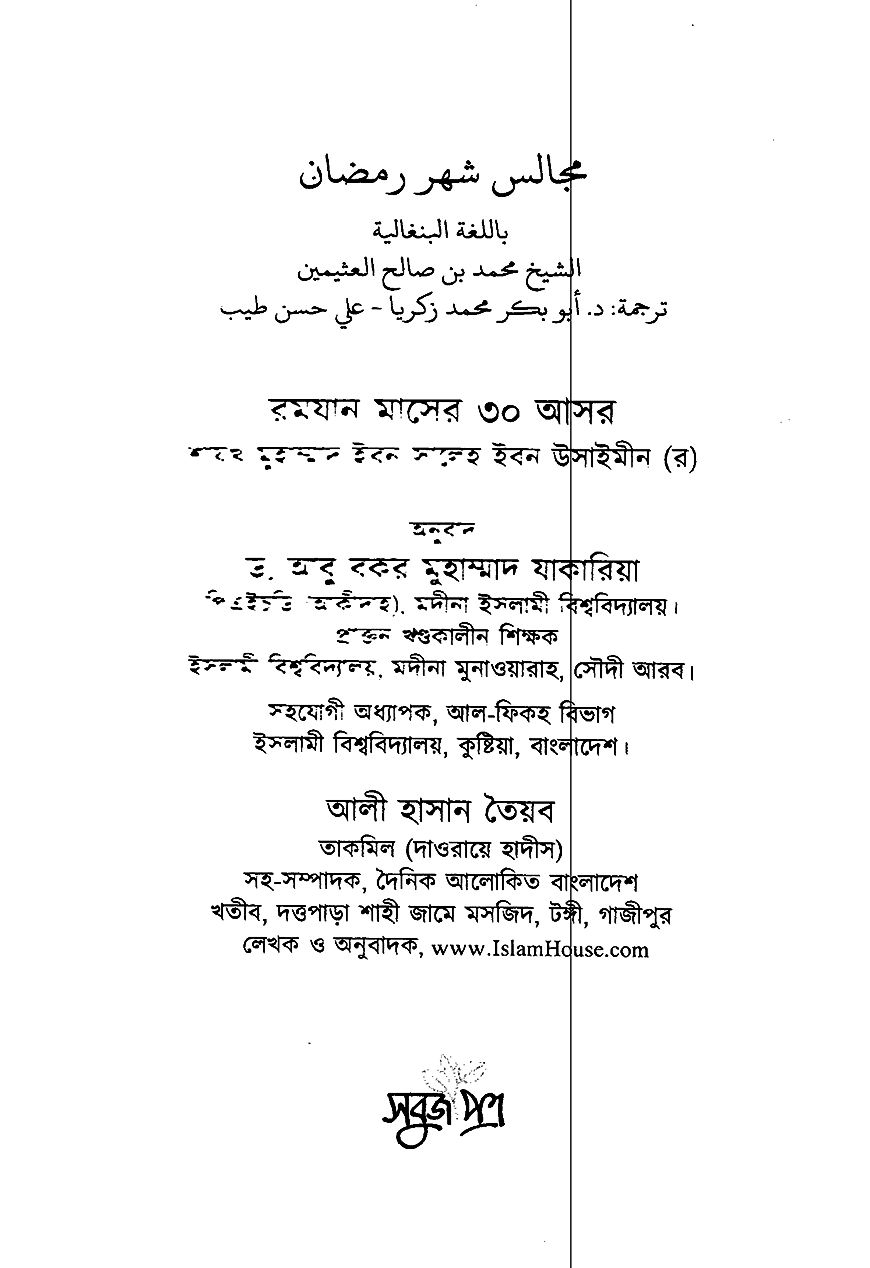 مجالس شهر رمضان
باللغة البنغالية
الشيخ محمد بن صالح العثيمين
ترجمة: د. أبو بكر محمد زكريا - علي حسن طيب
রমযান মাসের ৩০ আসর
মুহাম্মাদ ইবন সালেহ ইবন উসাইমীন (র)
অনুবাদ
ড. আবু বকর মুহাম্মাদ যাকারিয়া
পিএইচডি (আকীদাহ), মদীনা ইসলামী বিশ্ববিদ্যালয়।
প্রাক্তন খণ্ডকালীন শিক্ষক
ইসলামী বিশ্ববিদ্যালয়, মদীনা মুনাওয়ারাহ, সৌদী আরব।
সহযোগী অধ্যাপক, আল-ফিকহ বিভাগ
ইসলামী বিশ্ববিদ্যালয়, কুষ্টিয়া, বাংলাদেশ।
আলী হাসান তৈয়ব
তাকমিল (দাওরায়ে হাদীস)
সহ-সম্পাদক, দৈনিক আলোকিত বাংলাদেশ
খতীব, দত্তপাড়া শাহী জামে মসজিদ, টঙ্গী, গাজীপুর
লেখক ও অনুবাদক, www.IslamHouse.com
সবুজ পত্র